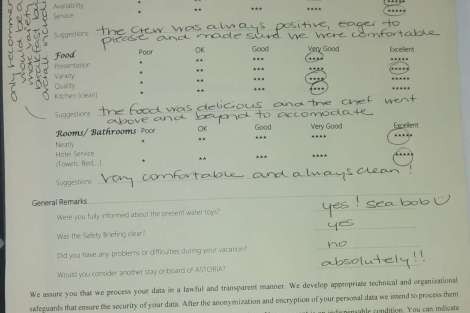 only recommen
would be a
more variety
breakfast bu
overall incredib
Availability * ** *** **** *****
Service * ** *** **** *****
Suggestions: the crew was always positive, eager to
please and made sure we were comfortable
Food Poor OK Good Very Good Excellent
Presentation * ** *** **** *****
Variety * ** *** **** *****
Quality * ** *** **** *****
Kitchen (clean) * ** *** **** *****
Suggestions: the food was delicious and the chef went
above and beyond to accomodate
Rooms/ Bathrooms Poor OK Good Very Good Excellent
Neatly * ** *** **** *****
Hotel Service
(Towels, Bed,..) * ** *** **** *****
Suggestions: very comfortable and always clean!
General Remarks
Were you fully informed about the present water toys? yes! seabob
Was the Safety Briefing clear? yes
Did you have any problems or difficulties during your vacation? no
Would you consider another stay on board of ASTORIA? absolutely!!
We assure you that we process your data in a lawful and transparent manner. We develop appropriate technical and organizational
safeguards that ensure the security of your data. After the anonymization and encryption of your personal data we intend to process them
condition. You can indicate